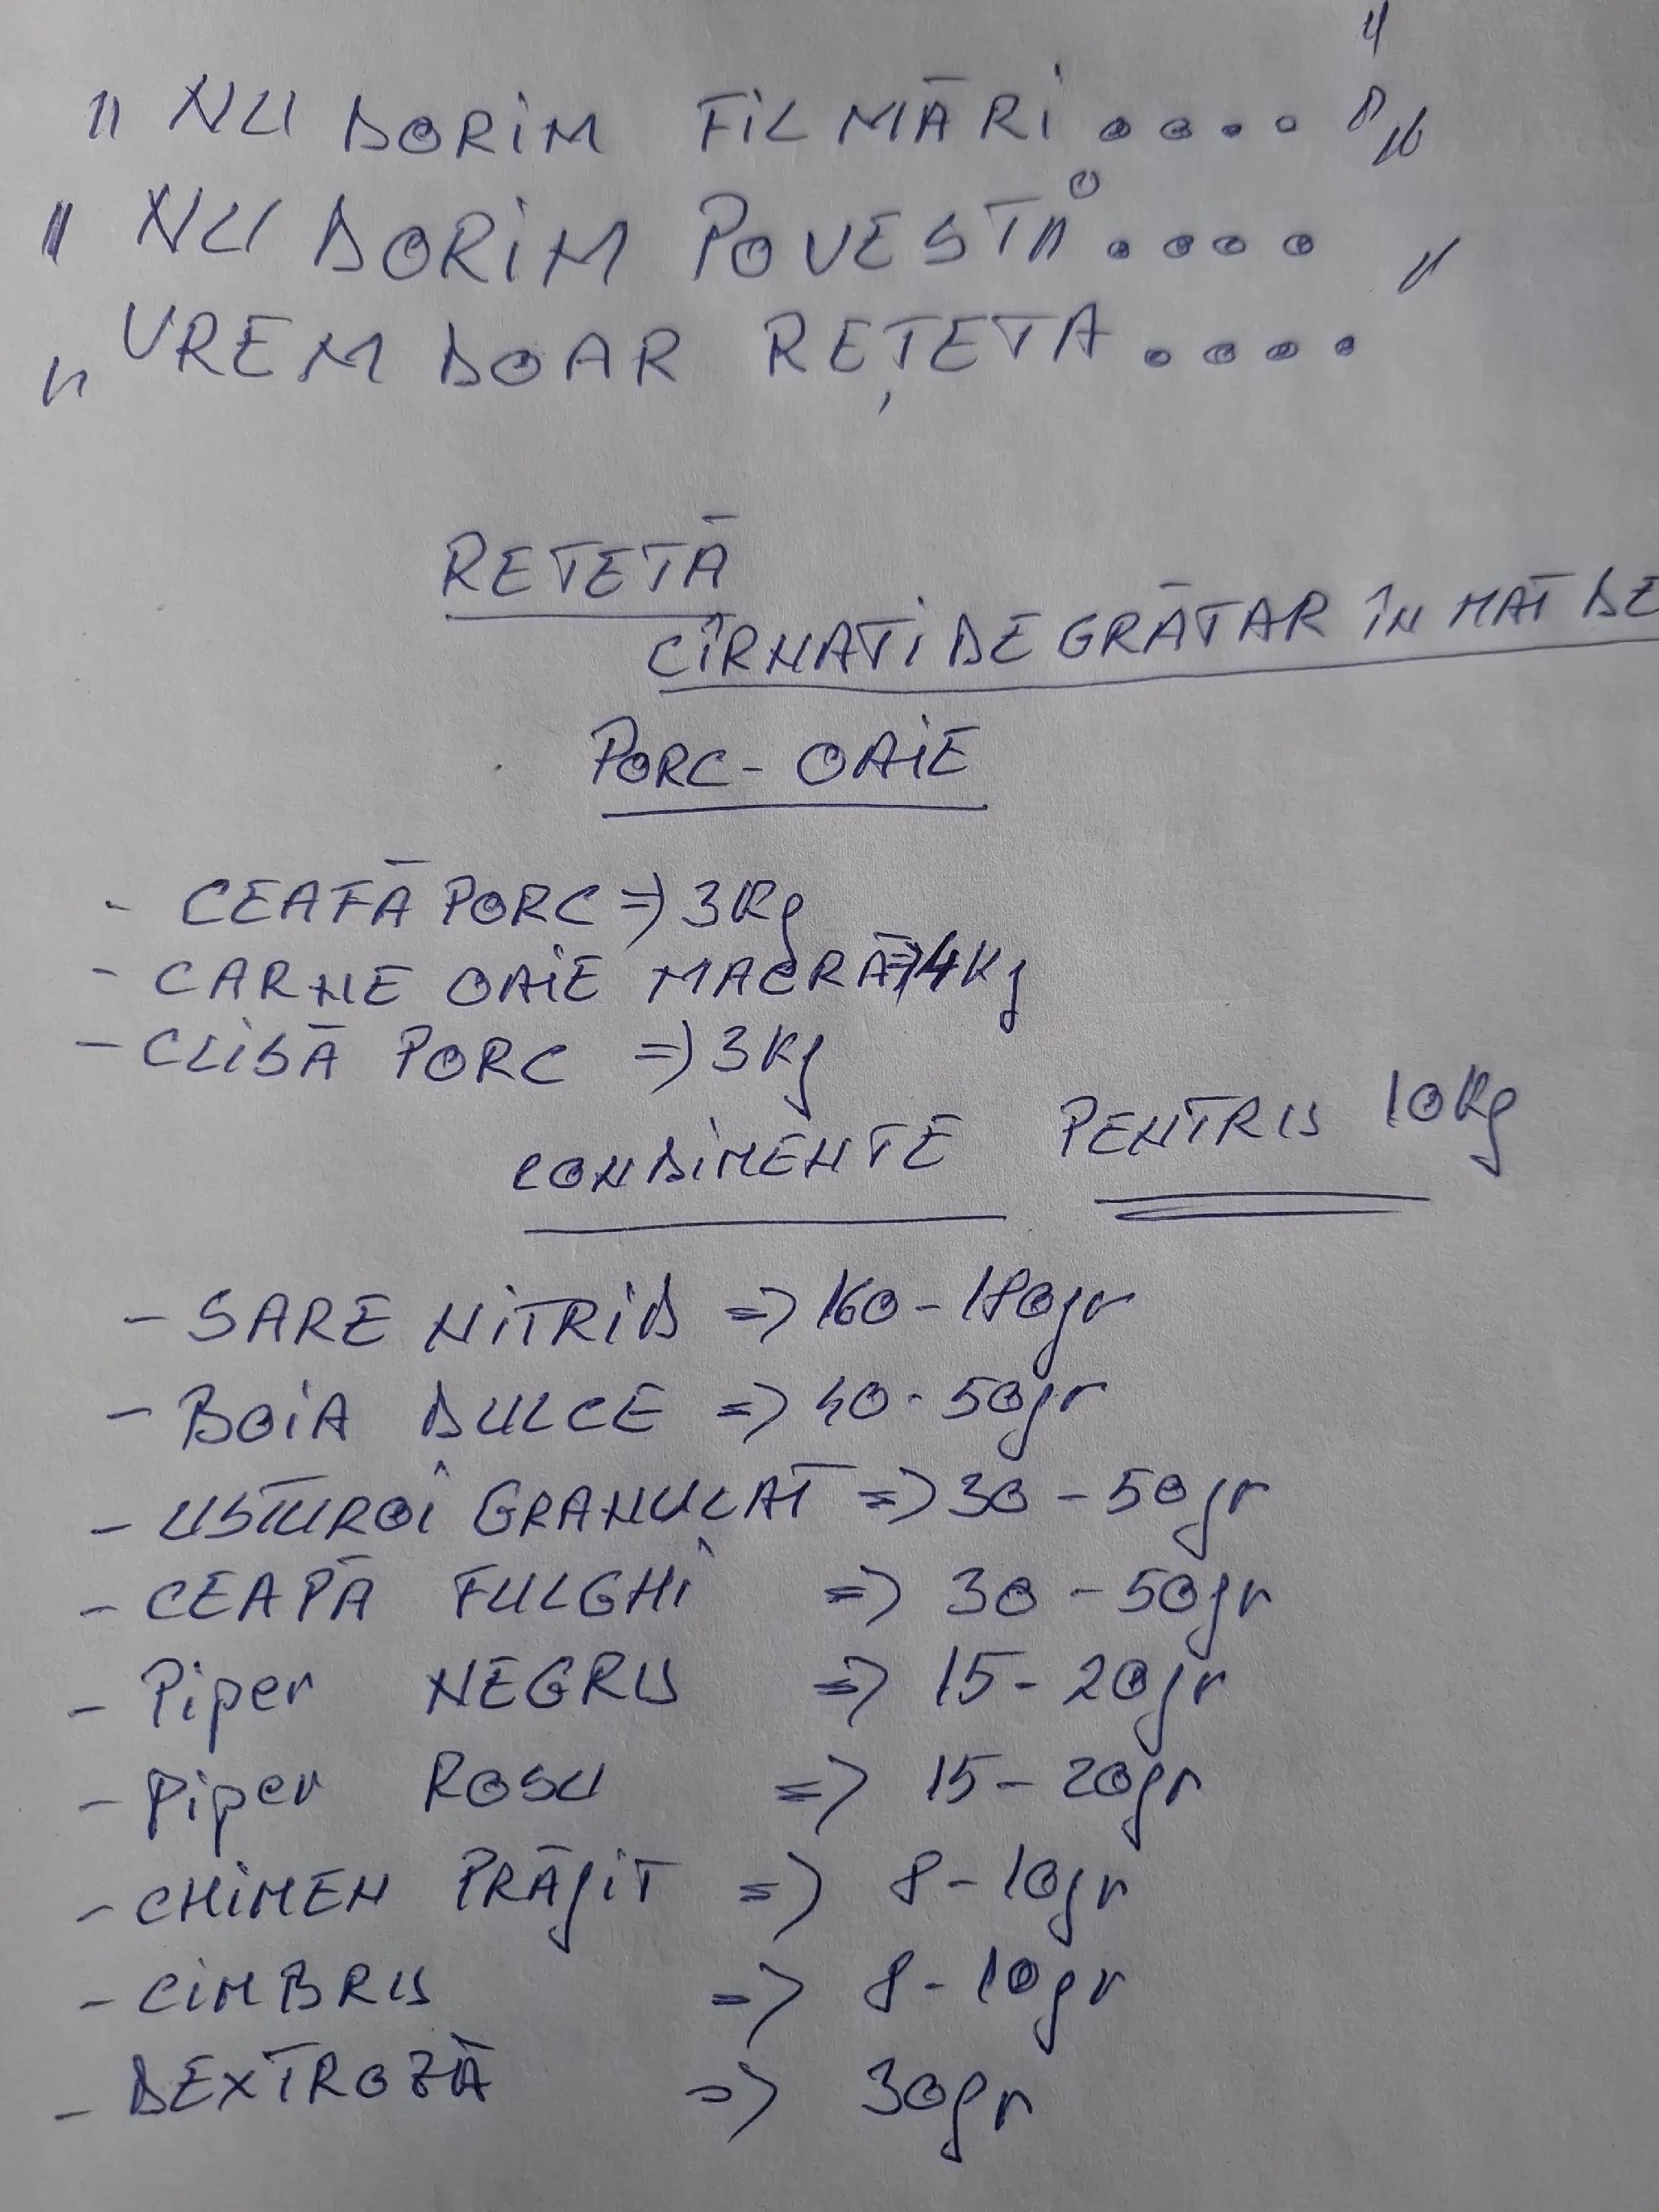 " NU DORIM FILMĂRI.... "
" NU DORIM POVESTI.... "
" VREM DOAR REȚETA....
RETETĂ
CÎRNATI DE GRĂTAR ÎN MAT DE
PORC - OAIE
- CEAFĂ PORC => 3Kg
- CARNE OAIE MACRĂ => 4Kg
- CLISĂ PORC => 3Kg
CONDIMENTE PENTRU 10Kg
- SARE NITRID => 160-180gr
- BOIA DULCE => 40-50gr
- USTUROI GRANULAT => 30-50gr
- CEAPĂ FULGHI => 30-50gr
- Piper NEGRU => 15-20gr
- Piper ROSU => 15-20gr
- CHIMEN PRĂJIT => 8-10gr
- CIMBRU => 8-10gr
- DEXTROZĂ => 30gr